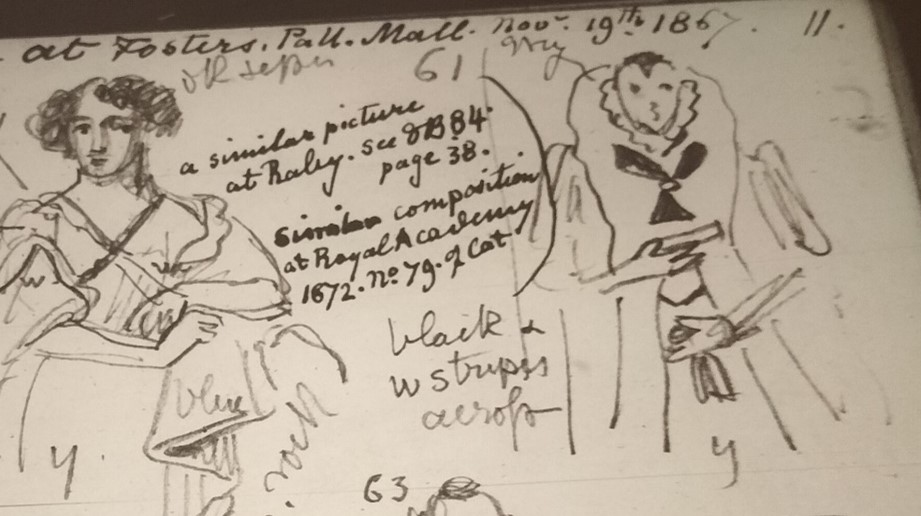 at Fosters. Pall. Mall. Novr. 19th 1867. 11.
61
a similar picture
at Raby. see SB 84.
page 38.
similar composition
at Royal Academy
1872. No. 79. of Cat
w
black &
w stripes
acrofs
blue
rock
y
y
63